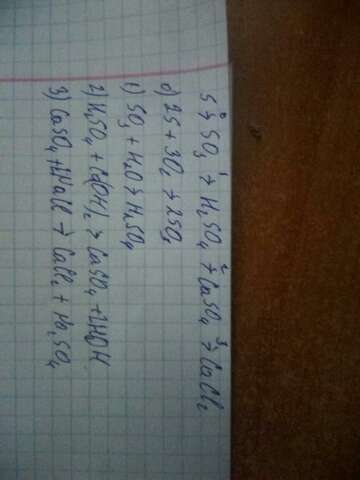 S ⁰→ SO₃ ¹→ H₂SO₄ ²→ CaSO₄ ³→ CaCl₂
0) 2S + 3O₂ → 2SO₃
1) SO₃ + H₂O → H₂SO₄
2) H₂SO₄ + Ca(OH)₂ → CaSO₄ + 2HOH
3) CaSO₄ + 2NaCl → CaCl₂ + Na₂SO₄